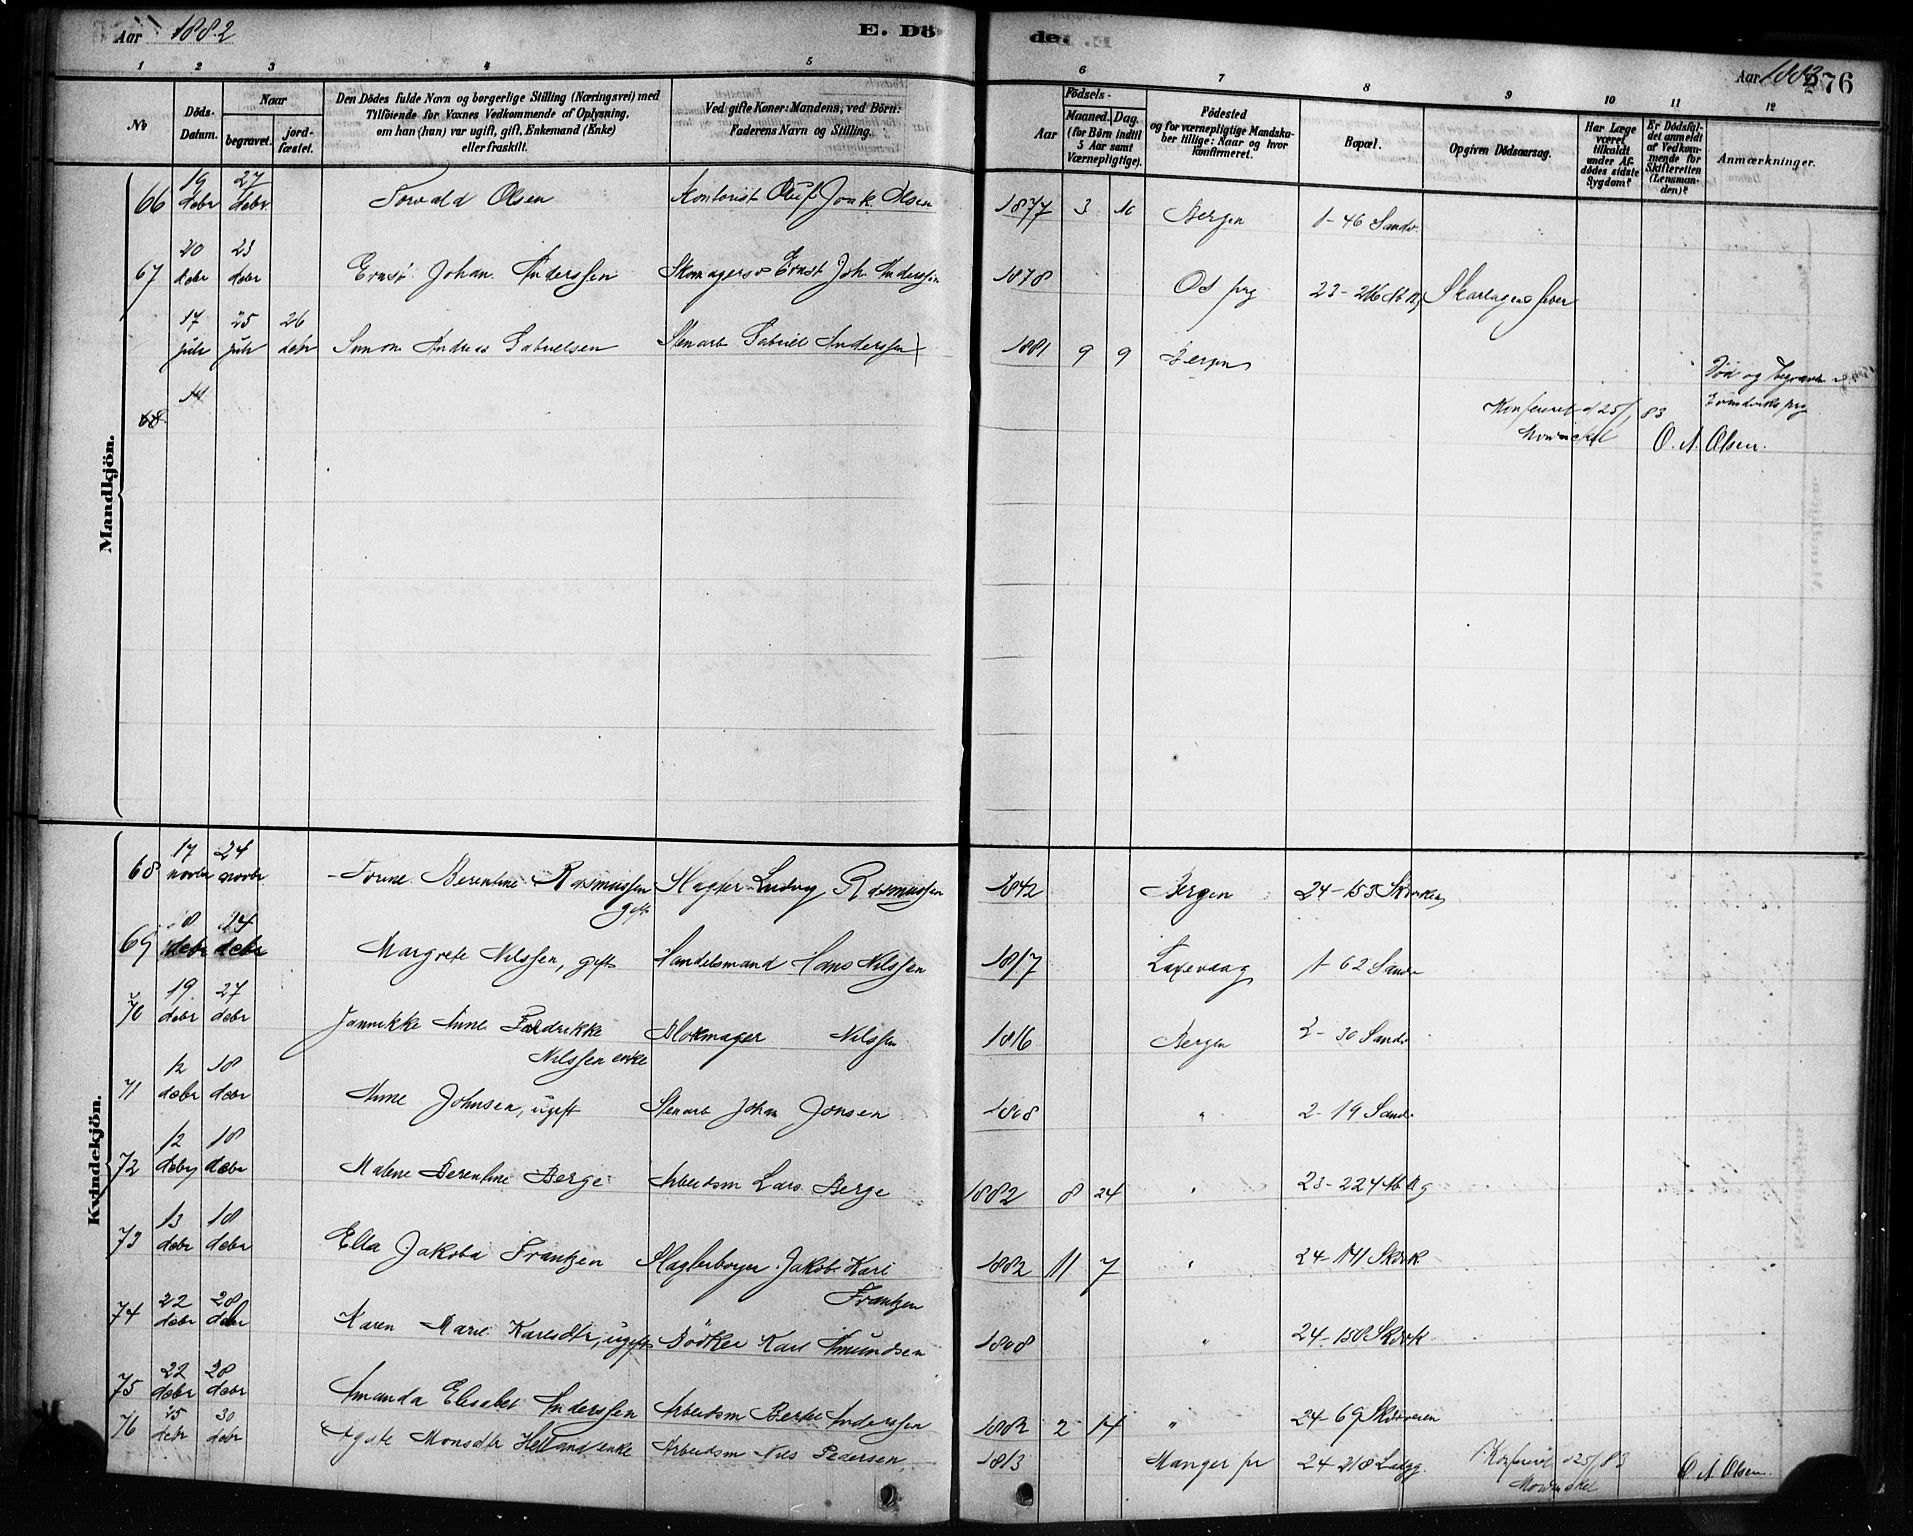 Aar 1882
E. Dö
de.
Aar 1882 276
1 2 3 4 5 6 7 8 9 10 11 12
No
Döds-Datum.
Naar
begravet.
jord-fæstet.
Den Dödes fulde Navn og borgerlige Stilling (Næringsvei) med
Tilföiende for Voxnes Vedkommende af Oplysning,
om han (hun) var ugift, gift, Enkemand (Enke)
eller fraskilt.
Ved gifte Koner: Mandens, ved Börn:
Faderens Navn og Stilling.
Födsels-
Aar
Maaned. Dag.
(for Börn indtil
5 Aar samt
Værnepligtige).
Födested
og for værnepligtige Mandska-
ber tillige: Naar og hvor
konfirmeret.
Bopæl.
Opgiven Dödsaarsag.
Har Læge
været
tilkaldt
under Af-
dödes sidste
Sygdom?
Er Dödsfal-
det anmeldt
af Vedkom-
mende for
Skifteretten
(Lensman-
den)?
Anmærkninger.
Mandkjön.
66 19 debr 27 debr Torvald Olsen Kontorist Oluf Joak Olsen 1877 3 16 Bergen 1-46 Sandv.
67 20 debr 23 debr Ernst Johan Anderssen Skomagersv Ernst Joh Anderssen 1878 Os prg 23-216 Skarlagensfeber
17 juli 25 juli 26 debr Simon Andreas Gabrielsen Stenarb Gabriel Anderssen 1881 9 9 Bergen
Död og begravet
prg
68
Konfereret d 25/1 83
Mowinckel O. A. Olsen.
Kvindekjön.
68 17 novbr 24 novbr Berentine Rasmussen gift Slagter Ludvig Rasmussen 1842 Bergen 24-155
69 18 debr 24 debr Margrete Nilssen, gift Handelsmand Hans Nilssen 1817 Laxevaag 1-62 Sandv
70 19 debr 27 debr Jannikke Anne Fredrikke
Nilssen enke Blokmager Nilssen 1816 Bergen 2-30 Sandv
71 12 debr 18 debr Anne Johnsen, ugift Stenarb Johan Jonsen 1808 " 2-19 Sandv
72 12 debr 18 debr Malene Berentine Berge Arbeidsm Lars Berge 1882 8 24 " 23-224
73 13 debr 18 debr Ella Jakoba Frantzen Slagterborger Jakob Karl
Frantzen 1882 11 7 " 24-141
74 22 debr 28 debr Karen Marie Karlsdtr, ugift Bödker Karl Amundsen 1808 " 24-150
75 22 debr 28 debr Amanda Elisabet Anderssen Arbeidsm Berte Anderssen 1882 2 14 " 24-69
76 15 debr 30 debr Agate Monsdtr Helland enke Arbeidsm Nils Pedersen 1813 Manger pr 24-218
Konfereret d 25/1 83
Mowinckel O A Olsen.